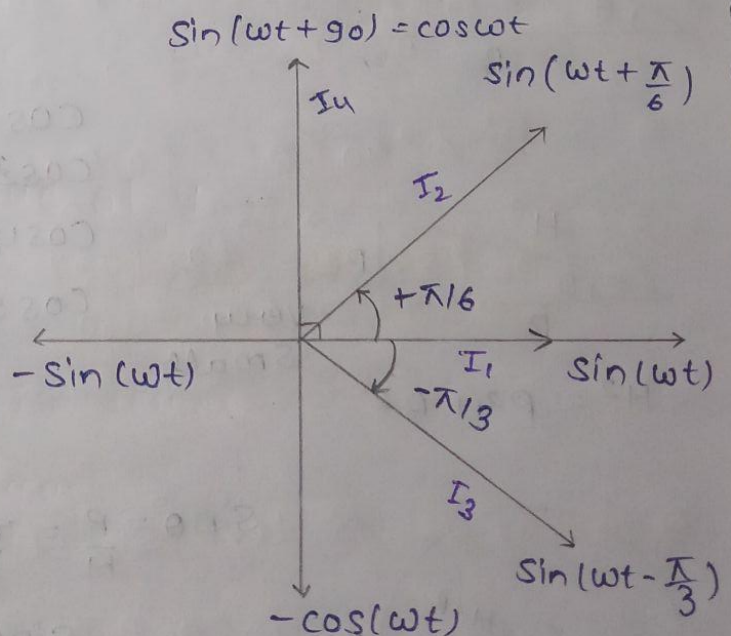 Sin(ωt+90) = cosωt
Sin(ωt + π/6)
I4
I2
+π/6
-Sin(ωt)
I1
Sin(ωt)
-π/3
I3
Sin(ωt - π/3)
-cos(ωt)